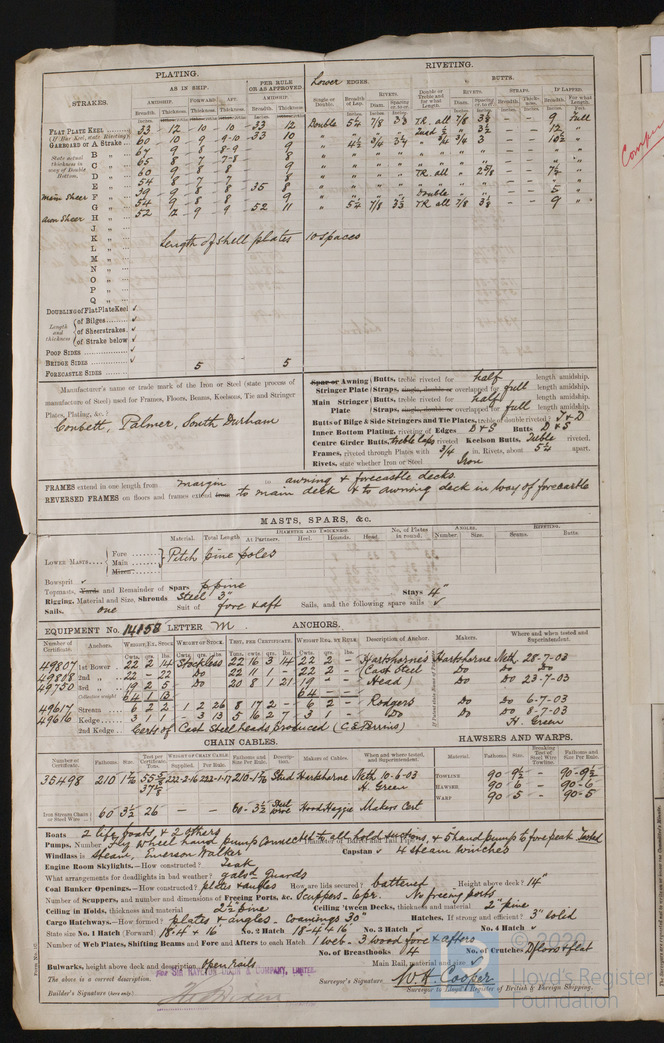 PLATING.
RIVETING.
AS IN SHIP.
PER RULE OR AS APPROVED.
Lower EDGES.
BUTTS.
STRAKES.
AMIDSHIP. FORWARD. AFT. AMIDSHIP.
RIVETS. STRAPS. IF LAPPED.
Breadth. Thickness. Thickness. Thickness. Breadth. Thickness.
Single or Double. Breadth of Lap. Diam. Spacing cr. to cr. Double or Treble and for what Length. Diam. Spacing cr. to cr. Breadth. Thickness. Breadth. For what Length.
FLAT PLATE KEEL 33 12 10 10 33 12 Double 5¼ 7/8 3½ TR. all 7/8 3½ — — 9 Full
(If Bar Keel, state Riveting)
GARBOARD OR A Strake 60 10 9 9-10 33 10
B " 67 9 8 8-9 9
State actual thickness in way of Double Bottom.
C " 65 8 7 7-8 8
D " 60 9 8 8 9
E " 54 8 7 7 8
Main Sheer F " 39 9 8 8 35 8
G " 54 9 8 8 9
Awn Sheer H " 52 12 9 9 52 11 " 5¼ 7/8 3½ TR all 7/8 3½ — — 9 "
J "
K "
Length of shell plates 10 spaces
L "
M "
N "
O "
P "
Q "
DOUBLING of Flat Plate Keel ✓
Length and thickness
of Bilges ✓
of Sheerstrakes ✓
of Strake below ✓
POOP SIDES ✓
BRIDGE SIDES ✓ 5 5
FORECASTLE SIDES
Manufacturer's name or trade mark of the Iron or Steel (state process of manufacture of Steel) used for Frames, Floors, Beams, Keelsons, Tie and Stringer Plates, Plating, &c.)
Consett, Palmer, South Durham
Spar or Awning Stringer Plate Butts, treble riveted for half length amidship.
Straps, single, double or overlapped for full length amidship.
Main Stringer Plate Butts, treble riveted for half length amidship.
Straps, single, double or overlapped for full length amidship.
Butts of Bilge & Side Stringers and Tie Plates, treble or double riveted? T & D
Inner Bottom Plating, riveting of Edges D & S Butts D & S
Centre Girder Butts, treble laps riveted Keelson Butts, Treble riveted.
Frames, riveted through Plates with 3/4 in. Rivets, about 5¼ apart.
Rivets, state whether Iron or Steel Iron
FRAMES extend in one length from margin to awning & forecastle decks.
REVERSED FRAMES on floors and frames extend from to main deck & to awning deck in way of forecastle
MASTS, SPARS, &c.
DIAMETER AND THICKNESS ANGLES. RIVETING.
Material. Total Length At Partners. Heel. Hounds. Head. No. of Plates in round. Number. Size. Seams. Butts
LOWER MASTS Fore
Main
Mizen
Pitch pine poles
Bowsprit ✓
Topmasts, Yards and Remainder of Spars p pine
Rigging, Material and Size, Shrouds Steel 3" Stays 4"
Sails. one Suit of fore & aft Sails, and the following spare sails ✓
EQUIPMENT No. 14158 LETTER M. ANCHORS.
Number of Certificate. Anchors. WEIGHT, EX. STOCK WEIGHT OF STOCK. TEST, PER CERTIFICATE. WEIGHT REQ. BY RULE Description of Anchor. Makers. Where and when tested and Superintendent.
49807 1st Bower 22 2 14 Stockless 22 16 3 14 22 2 — Hartshornes Hartshorne Neth 28-7-03
49808 2nd " 22 — 22 Do 22 11 1 — 22 2 — (Cast Steel Do Do Do
49750 3rd " 19 2 5 Do 20 8 1 21 19 — — Head) Do Do 23-7-03
Collective weight 64 1 13 64 — —
49617 Stream 6 2 2 1 2 26 8 17 2 — 6 2 — Rodgers Do Do 6-7-03
49616 Kedge 3 1 1 — 3 13 5 16 2 7 3 1 — Do Do Do 8-7-03
2nd Kedge Certs of Cast Steel heads produced (C.E. Perrins) H. Green
CHAIN CABLES.
HAWSERS AND WARPS.
Number of Certificate. Fathoms. Size. Test per Certificate. WEIGHT OF CHAIN CABLE Supplied. Per Rule. Fathoms and Size Per Rule. Description. Makers of Cables. When and where tested, and Superintendent. Material. Fathoms. Size. Breaking Test of Steel Wire Towline. Fathoms and Size per Rule.
35498 210 Stud Hartshorne Neth 10-6-03
H. Green
TOWLINE 90 - 9½ — 90-9½
HAWSER 90 - 6 — 90-6
WARP 90 - 5 — 90-5
Iron Stream Chain or Steel Wire 60 3½ 26 — — 60 - 3½ Steel Wire Hood Haggie Makers Cert
Boats 2 life boats, & 2 others
Pumps, Number Fly wheel hand pump connected to all hold suctions, & 5 hand pump to fore peak Tested
Windlass is Steam, Emerson Walker Capstan ✓ 4 Steam winches
Engine Room Skylights.—How constructed? Teak
What arrangements for deadlights in bad weather? galvd guards
Coal Bunker Openings.—How constructed? plates & angles How are lids secured? battened Height above deck? 14"
Number of Scuppers, and number and dimensions of Freeing Ports, &c. Scuppers - 6 pr. No freeing ports
Ceiling in Holds, thickness and material 2½ pine Ceiling 'tween Decks, thickness and material 2" pine
Cargo Hatchways.—How formed? plates & angles - Coamings 30" Hatches, If strong and efficient? 3" solid
State size No. 1 Hatch (Forward) 18.4 × 16' No. 2 Hatch 18-4 × 16' No. 3 Hatch ✓ No. 4 Hatch ✓
Number of Web Plates, Shifting Beams and Fore and Afters to each Hatch 1 web - 3 wood fore & afters
No. of Breasthooks 14 No. of Crutches D floors & flat
Bulwarks, height above deck and description Open rails Main Rail, material and size ✓
The above is a correct description.
FOR SIR RAYLTON DIXON & COMPANY, LIMITED.
Builder's Signature (here only)
Surveyor's Signature W. H. Cooper
Surveyor to Lloyd's Register of British & Foreign Shipping.
© 2020
Lloyd's Register
Foundation